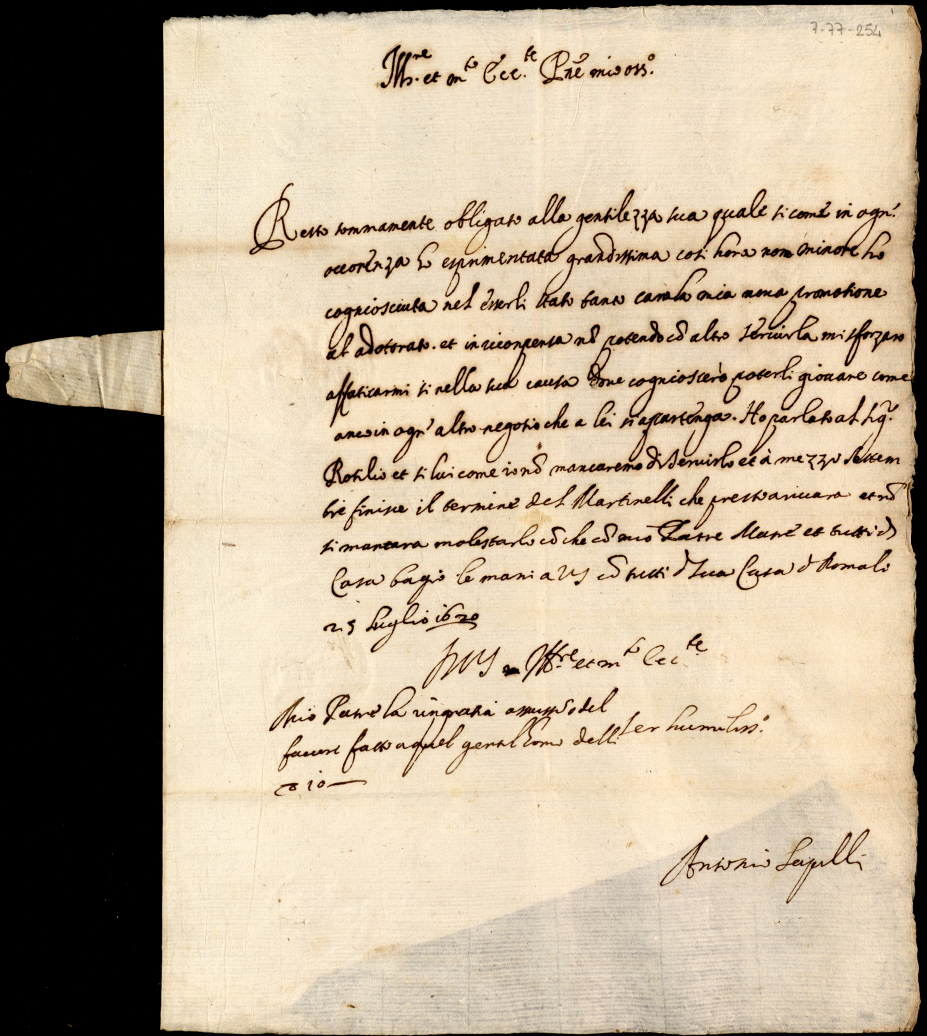 7-77-254
Ill.re et m.to Ecc.te Prē mio oss.o
Resto sommamente obligato alla gentilezza sua quale si come in ogn'
occorenza ho esprimentata grandissima cosi hora non minore ho
cogniosciuta nel esserli stato tanto cara la mia nova promotione
al adottorato. et in riconpensa nō potendo cō altro servirla mi sforzaro
affaticarmi si nella sua causa dove cognioscerò poterli giovare come
anco in ogn' altro negotio che a lei si apartenga. Ho parlato al Sig.r
Rotilio et si lui come io nō mancaremo di servirlo et à mezzo Settem
bre finisce il termine del Martinelli che presto arivara et nō
si mancara molestarlo cō che cō mio Patre Matre et tutti dī
Casa bagio le mani a VS cō tutti dī sua Casa dī Roma li
25 Luglio 1620
Di VS Ill.re et m.to Ecc.te
Mio Patre la ringratia del
favore fatto a quel gentilhomo dell
Ser humiliss.o
io
Antonio